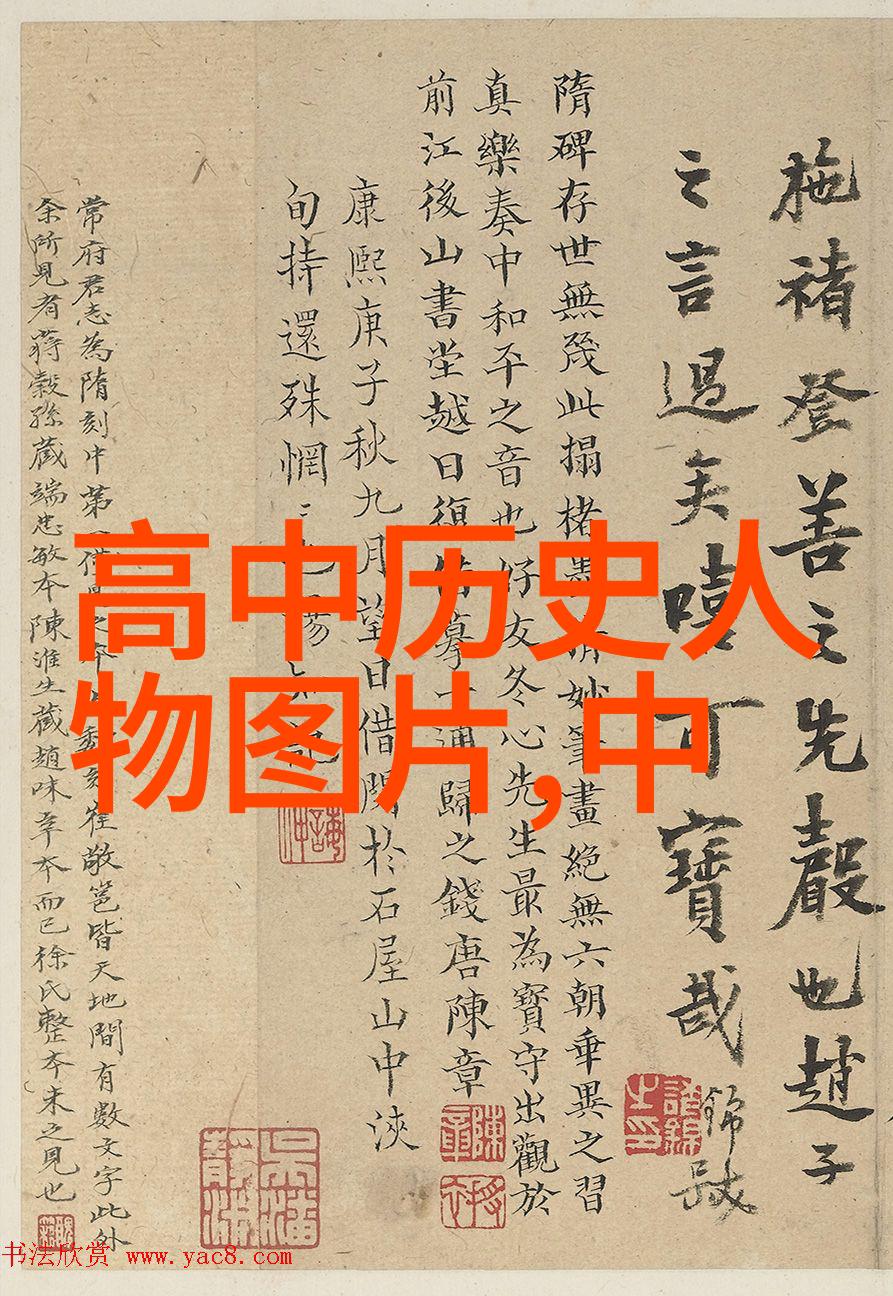 施褚登善之先聲也趙子
之言過矣嘻可寶哉
錦
隋碑存世無幾此搨楮墨精妙筆畫絕無六朝乖異之習
真樂奏中和平之音也仔友冬心先生最為寶守出觀於
前江後山書堂越日復借摹一通歸之錢唐陳章
陳章
康熙庚子秋九月望日借閱於石屋山中浹
旬持還殊惘
常府君志為隋刻中第一
刻崔敬邕皆天地間有數文字此外
余所見有蔣穀孫藏端忠敏本陳淮生藏趙味辛本而已徐氏整本未之見也
高中历史人
物图片,中
书法欣赏 www.yac8.com